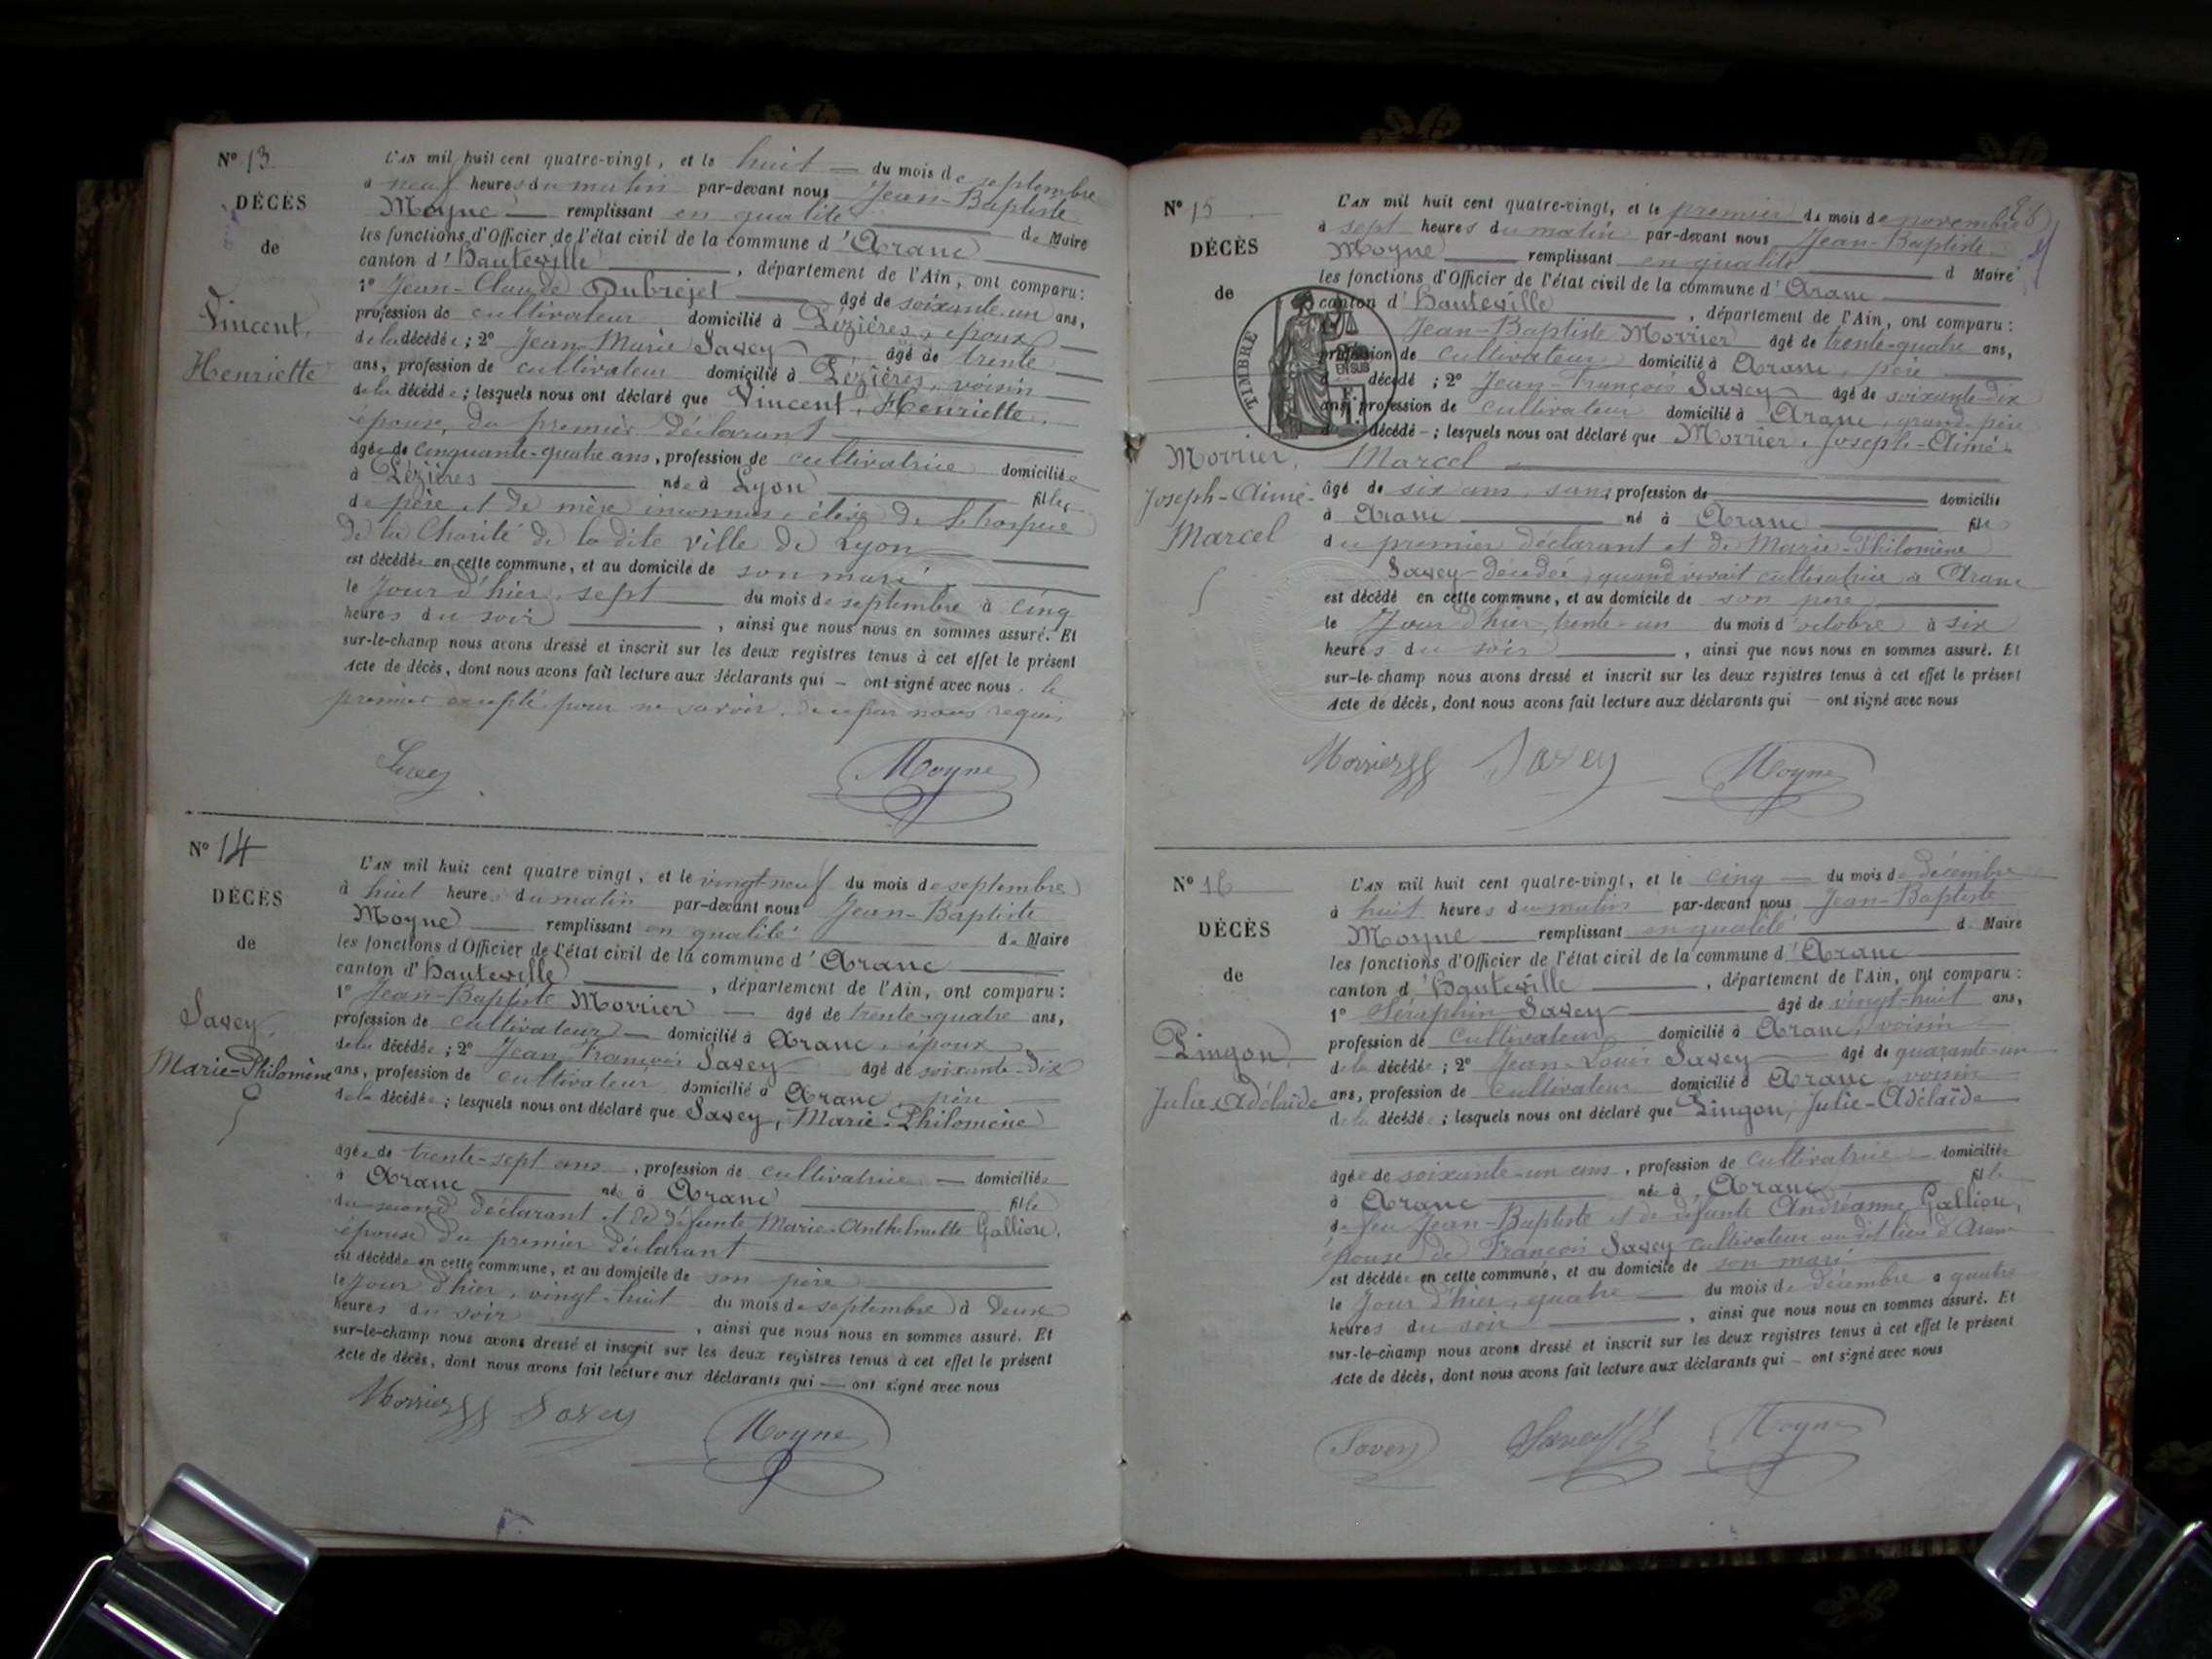 N° 13
DÉCÈS
de
Vincent,
Henriette
L'AN mil huit cent quatre-vingt, et le huit — du mois de septembre
à neuf heures du matin par-devant nous Jean-Baptiste
Moyne — remplissant en qualité de Maire
les fonctions d'Officier de l'état civil de la commune d'Aranc
canton d'Hauteville , département de l'Ain, ont comparu:
1° Jean-Claude Dubrejet âgé de soixante-un ans,
profession de cultivateur domicilié à Lézières, époux
de la décédée; 2° Jean Marie Savey âgé de trente
ans, profession de cultivateur domicilié à Lézières, voisin
de la décédée; lesquels nous ont déclaré que Vincent, Henriette,
épouse, du premier déclarant
âgée de cinquante-quatre ans, profession de cultivatrice domiciliée
à Lézières née à Lyon fille
de père et de mère inconnus, élève de l'hospice
de la Charité de la dite ville de Lyon
est décédée en cette commune, et au domicile de son mari,
le Jour d'hier, sept du mois de septembre à cinq
heures du soir , ainsi que nous nous en sommes assuré. Et
sur-le-champ nous avons dressé et inscrit sur les deux registres tenus à cet effet le présent
Acte de décès, dont nous avons fait lecture aux déclarants qui — ont signé avec nous, le
premier excepté pour ne savoir, de ce par nous requis
Savey
Moyne
N° 14
DÉCÈS
de
Savey,
Marie-Philomène
L'AN mil huit cent quatre vingt, et le vingt-neuf du mois de septembre
à huit heures du matin par-devant nous Jean-Baptiste
Moyne — remplissant en qualité de Maire
les fonctions d'Officier de l'état civil de la commune d'Aranc
canton d'Hauteville , département de l'Ain, ont comparu:
1° Jean-Baptiste Morrier — âgé de trente-quatre ans,
profession de cultivateur — domicilié à Aranc, époux
de la décédée; 2° Jean François Savey âgé de soixante-dix
ans, profession de cultivateur domicilié à Aranc, père
de la décédée; lesquels nous ont déclaré que Savey, Marie-Philomène
âgée de trente-sept ans, profession de cultivatrice — domiciliée
à Aranc née à Aranc fille
du second déclarant et de défunte Marie-Anthelmette Gallion,
épouse du premier déclarant
est décédée en cette commune, et au domicile de son père
le Jour d'hier, vingt-huit du mois de septembre à deux
heures du soir , ainsi que nous nous en sommes assuré. Et
sur-le-champ nous avons dressé et inscrit sur les deux registres tenus à cet effet le présent
Acte de décès, dont nous avons fait lecture aux déclarants qui — ont signé avec nous
Morrier Savey
Moyne
N° 15
DÉCÈS
de
Morrier,
Joseph-Aimé-
Marcel
TIMBRE
EN SUS
L'AN mil huit cent quatre-vingt, et le premier du mois de novembre
à sept heures du matin par-devant nous Jean-Baptiste
Moyne remplissant en qualité d Maire
les fonctions d'Officier de l'état civil de la commune d'Aranc
canton d'Hauteville , département de l'Ain, ont comparu:
Jean-Baptiste Morrier âgé de trente-quatre ans,
profession de cultivateur domicilié à Aranc, père
décédé; 2° Jean-François Savey âgé de soixante-dix
ans, profession de cultivateur domicilié à Aranc, grand-père
décédé; lesquels nous ont déclaré que Morrier, Joseph-Aimé-
Marcel
âgé de six ans, sans profession de domicilié
à Aranc né à Aranc fils
du premier déclarant et de Marie-Philomène
Savey décédée, quand vivait cultivatrice à Aranc
est décédé en cette commune, et au domicile de son père
le Jour d'hier, trente-un du mois d'octobre à six
heures du soir , ainsi que nous nous en sommes assuré. Et
sur-le-champ nous avons dressé et inscrit sur les deux registres tenus à cet effet le présent
Acte de décès, dont nous avons fait lecture aux déclarants qui — ont signé avec nous
Morrier Savey Moyne
N° 16
DÉCÈS
de
Pingon,
Julie-Adélaïde
L'AN mil huit cent quatre-vingt, et le cinq — du mois de décembre
à huit heures du matin par-devant nous Jean-Baptiste
Moyne — remplissant en qualité d. Maire
les fonctions d'Officier de l'état civil de la commune d'Aranc
canton d'Hauteville , département de l'Ain, ont comparu:
1° Séraphin Savey âgé de vingt-huit ans,
profession de cultivateur domicilié à Aranc, voisin
de la décédée; 2° Jean-Louis Savey âgé de quarante-un
ans, profession de cultivateur domicilié à Aranc, voisin
de la décédée; lesquels nous ont déclaré que Pingon, Julie-Adélaïde
âgée de soixante-un ans, profession de cultivatrice — domiciliée
à Aranc née à Aranc fille
de feu Jean-Baptiste et de défunte Andréanne Gallion,
épouse de François Savey cultivateur au dit lieu d'Aranc
est décédée en cette commune, et au domicile de son mari
le Jour d'hier, quatre — du mois de décembre à quatre
heures du soir , ainsi que nous nous en sommes assuré. Et
sur-le-champ nous avons dressé et inscrit sur les deux registres tenus à cet effet le présent
Acte de décès, dont nous avons fait lecture aux déclarants qui — ont signé avec nous
Savey Savey Moyne